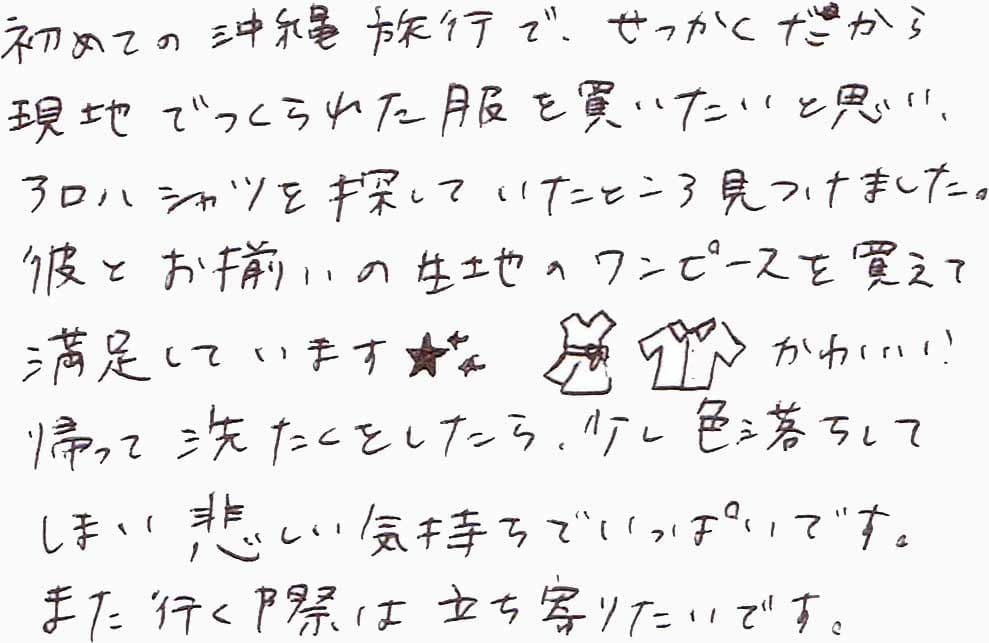 初めての沖縄旅行で、せっかくだから
現地でつくられた服を買いたいと思い、
アロハシャツを探していたところ見つけました。
彼とお揃いの生地のワンピースを買えて
満足しています★ かわいい！
帰って洗たくをしたら、少し色落ちして
しまい悲しい気持ちでいっぱいです。
また行く際は立ち寄りたいです。